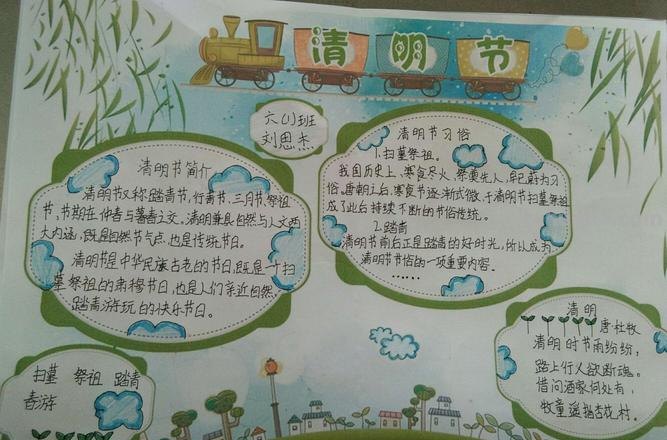 清明节
六(1)班
刘思杰
清明节简介
清明节又称踏青节,行青节、三月节祭祖
节,节期在仲春与暮春之交。清明兼具自然与人文两
大内涵,既是自然节气点,也是传统节日。
清明节是中华民族古老的节日,既是一个扫
墓祭祖的肃穆节日,也是人们亲近自然、
踏青游玩的快乐节日。
清明节习俗
1.扫墓祭祖。
我国历史上,寒食尽火,祭奠先人,早已蔚为习
俗。唐朝之后,寒食节逐渐式微,于清明节扫墓祭祖
成了此后持续不断的节俗传统。
2.踏青
清明节前后正是踏青的好时光,所以成为
清明节节俗的一项重要内容。
……
扫墓 祭祖 踏青
春游
清明
唐杜牧
清明时节雨纷纷,
路上行人欲断魂。
借问酒家何处有,
牧童遥指杏花村。